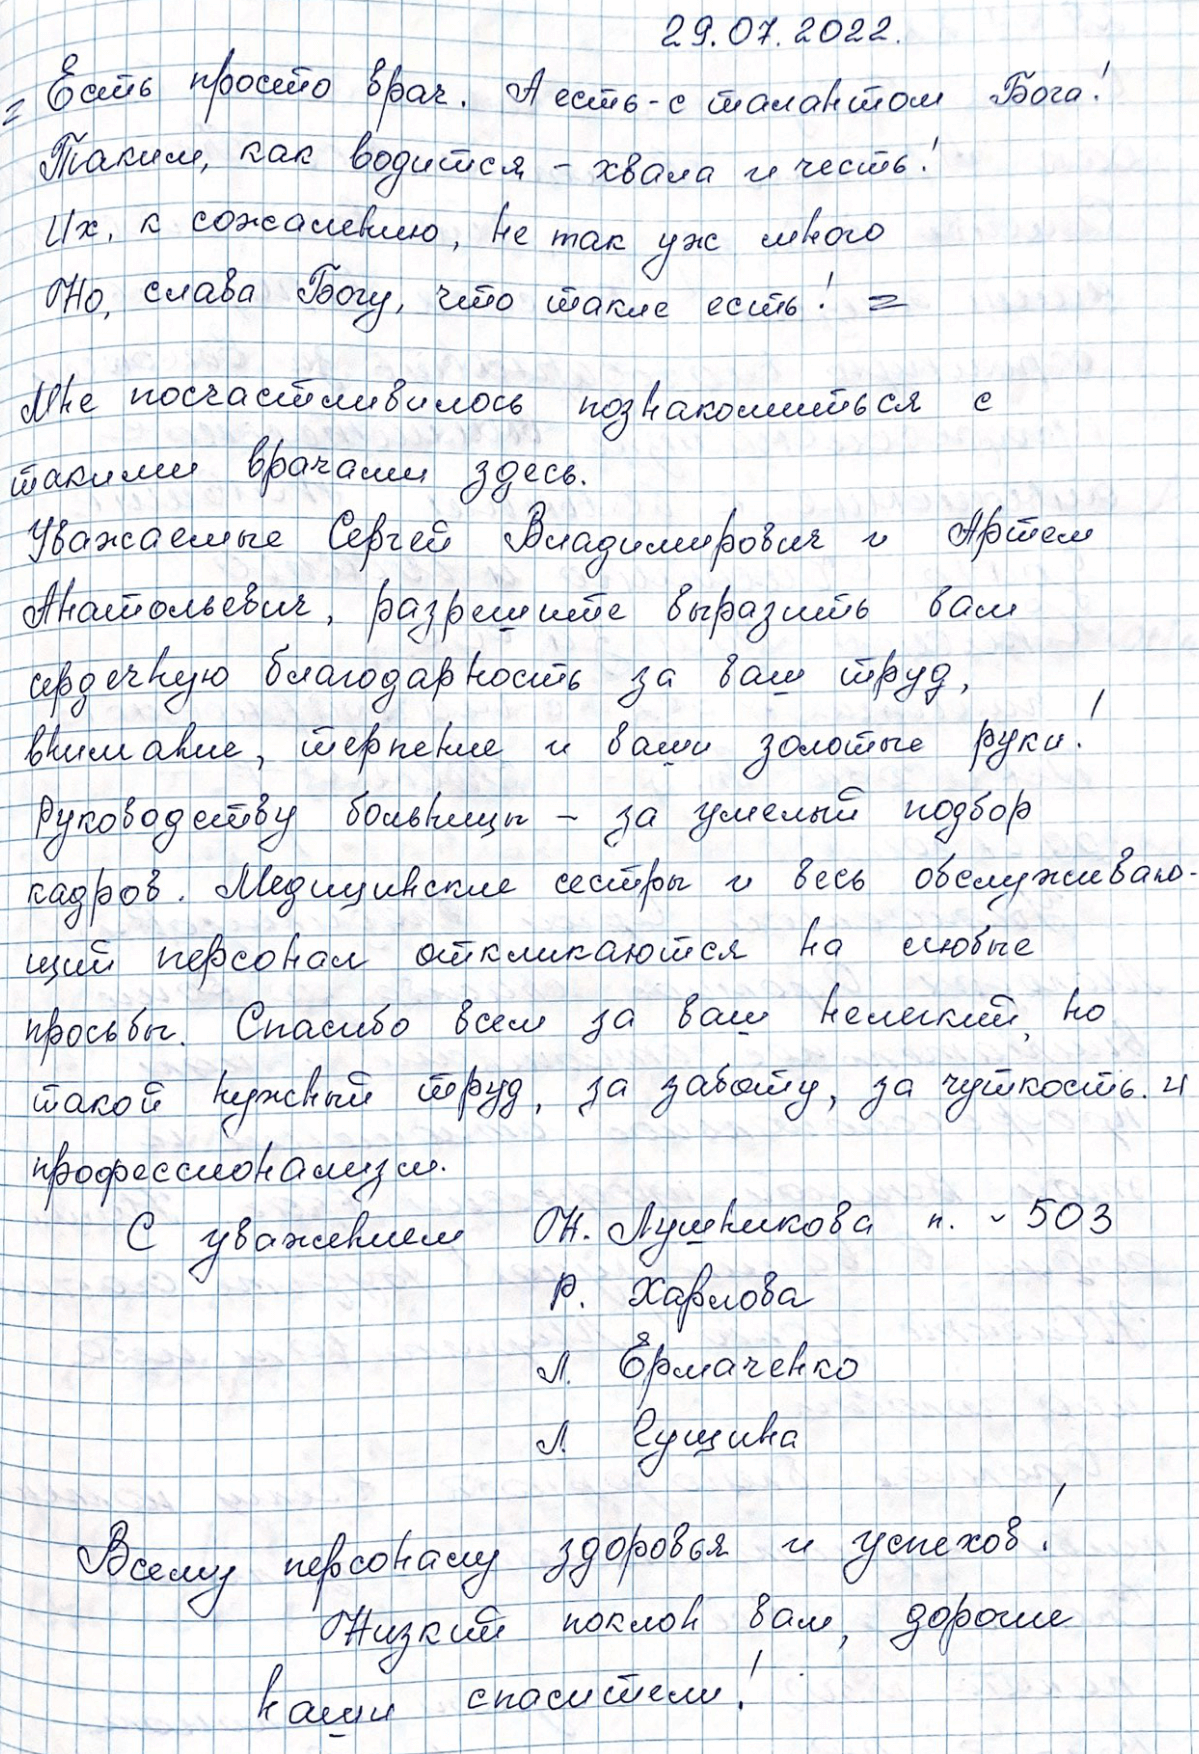 29.07.2022.
= Есть просто врач. А есть - с талантом Бога!
Таким, как водится - хвала и честь!
Их, к сожалению, не так уж много
Но, слава Богу, что такие есть! =
Мне посчастливилось познакомиться с
такими врачами здесь.
Уважаемые Сергей Владимирович и Артем
Анатольевич, разрешите выразить вам
сердечную благодарность за ваш труд,
внимание, терпение и ваши золотые руки!
Руководству больницы - за умелый подбор
кадров. Медицинские сестры и весь обслуживаю-
щий персонал откликаются на любые
просьбы. Спасибо всем за ваш нелегкий, но
такой нужный труд, за заботу, за чуткость. и
профессионализм.
С уважением Н. Лушникова п. - 503
Р. Харлова
Л. Ермаченко
Л. Гущина
Всему персоналу здоровья и успехов!
Низкий поклон вам, дорогие
наши спасители!